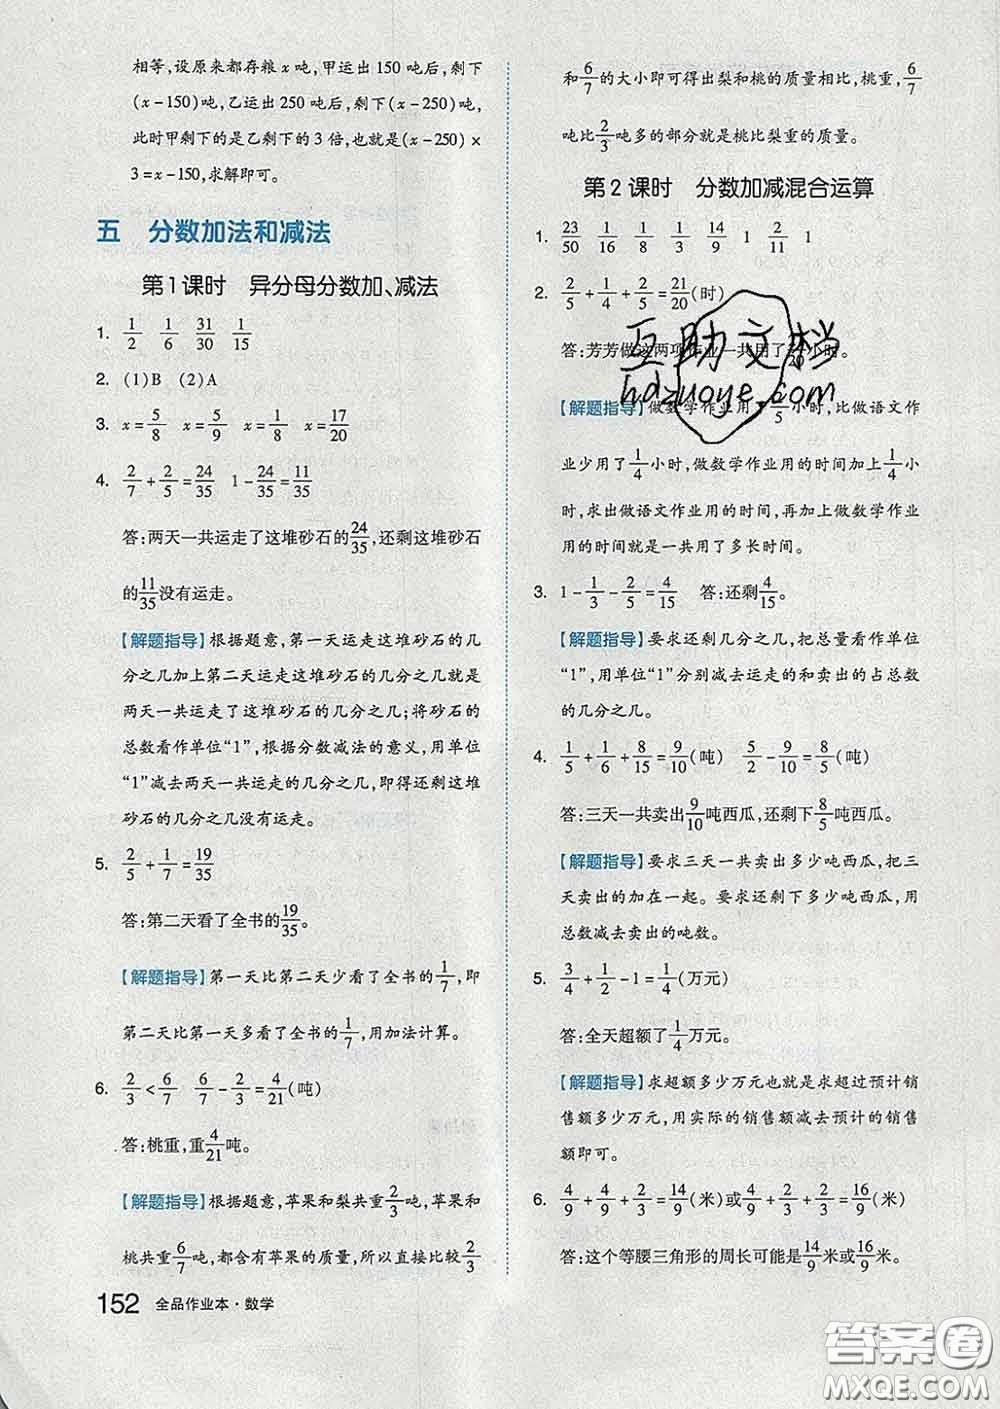 相等,设原来都存粮x吨,甲运出150吨后,剩下
(x-150)吨,乙运出250吨后,剩下(x-250)吨,
此时甲剩下的是乙剩下的3倍,也就是(x-250)×
3=x-150,求解即可。
五 分数加法和减法
第1课时 异分母分数加、减法
1. 1/2 1/6 31/30 1/15
2. (1)B (2)A
3. x=5/8 x=5/9 x=1/8 x=17/20
4. 2/7+2/5=24/35 1-24/35=11/35
答:两天一共运走了这堆砂石的24/35,还剩这堆砂石
的11/35没有运走。
【解题指导】根据题意,第一天运走这堆砂石的几
分之几加上第二天运走这堆砂石的几分之几就是
两天一共运走了这堆砂石的几分之几;将砂石的
总数看作单位“1”,根据分数减法的意义,用单位
“1”减去两天一共运走的几分之几,即得还剩这堆
砂石的几分之几没有运走。
5. 2/5+1/7=19/35
答:第二天看了全书的19/35。
【解题指导】第一天比第二天少看了全书的1/7,即
第二天比第一天多看了全书的1/7,用加法计算。
6. 2/3<6/7 6/7-2/3=4/21(吨)
答:桃重,重4/21吨。
【解题指导】根据题意,苹果和梨共重2/3吨,苹果和
桃共重6/7吨,都含有苹果的质量,所以直接比较2/3
152 全品作业本·数学
和6/7的大小即可得出梨和桃的质量相比,桃重,6/7
吨比2/3吨多的部分就是桃比梨重的质量。
第2课时 分数加减混合运算
1. 23/50 1/16 1/8 1/3 14/9 1 2/11 1
2. 2/5+1/4+2/5=21/20(时)
答:芳芳做这两项作业一共用了21/20小时。
【解题指导】做数学作业用了2/5小时,比做语文作
业少用了1/4小时,做数学作业用的时间加上1/4小
时,求出做语文作业用的时间,再加上做数学作业
用的时间就是一共用了多长时间。
3. 1-1/3-2/5=4/15 答:还剩4/15。
【解题指导】要求还剩几分之几,把总量看作单位
“1”,用单位“1”分别减去运走的和卖出的占总数
的几分之几。
4. 1/5+1/6+8/15=9/10(吨) 5/2-9/10=8/5(吨)
答:三天一共卖出9/10吨西瓜,还剩下8/5吨西瓜。
【解题指导】要求三天一共卖出多少吨西瓜,把三
天卖出的加在一起。要求还剩下多少吨西瓜,用
总数减去卖出的吨数。
5. 3/4+1/2-1=1/4(万元)
答:全天超额了1/4万元。
【解题指导】求超额多少万元也就是求超过预计销
售额多少万元,用实际的销售额减去预计的销售
额即可。
6. 4/9+4/9+2/3=14/9(米)或4/9+2/3+2/3=16/9(米)
答:这个等腰三角形的周长可能是14/9米或16/9米。
互助文档
hdzuoye.com
答案圈
MXQE.COM